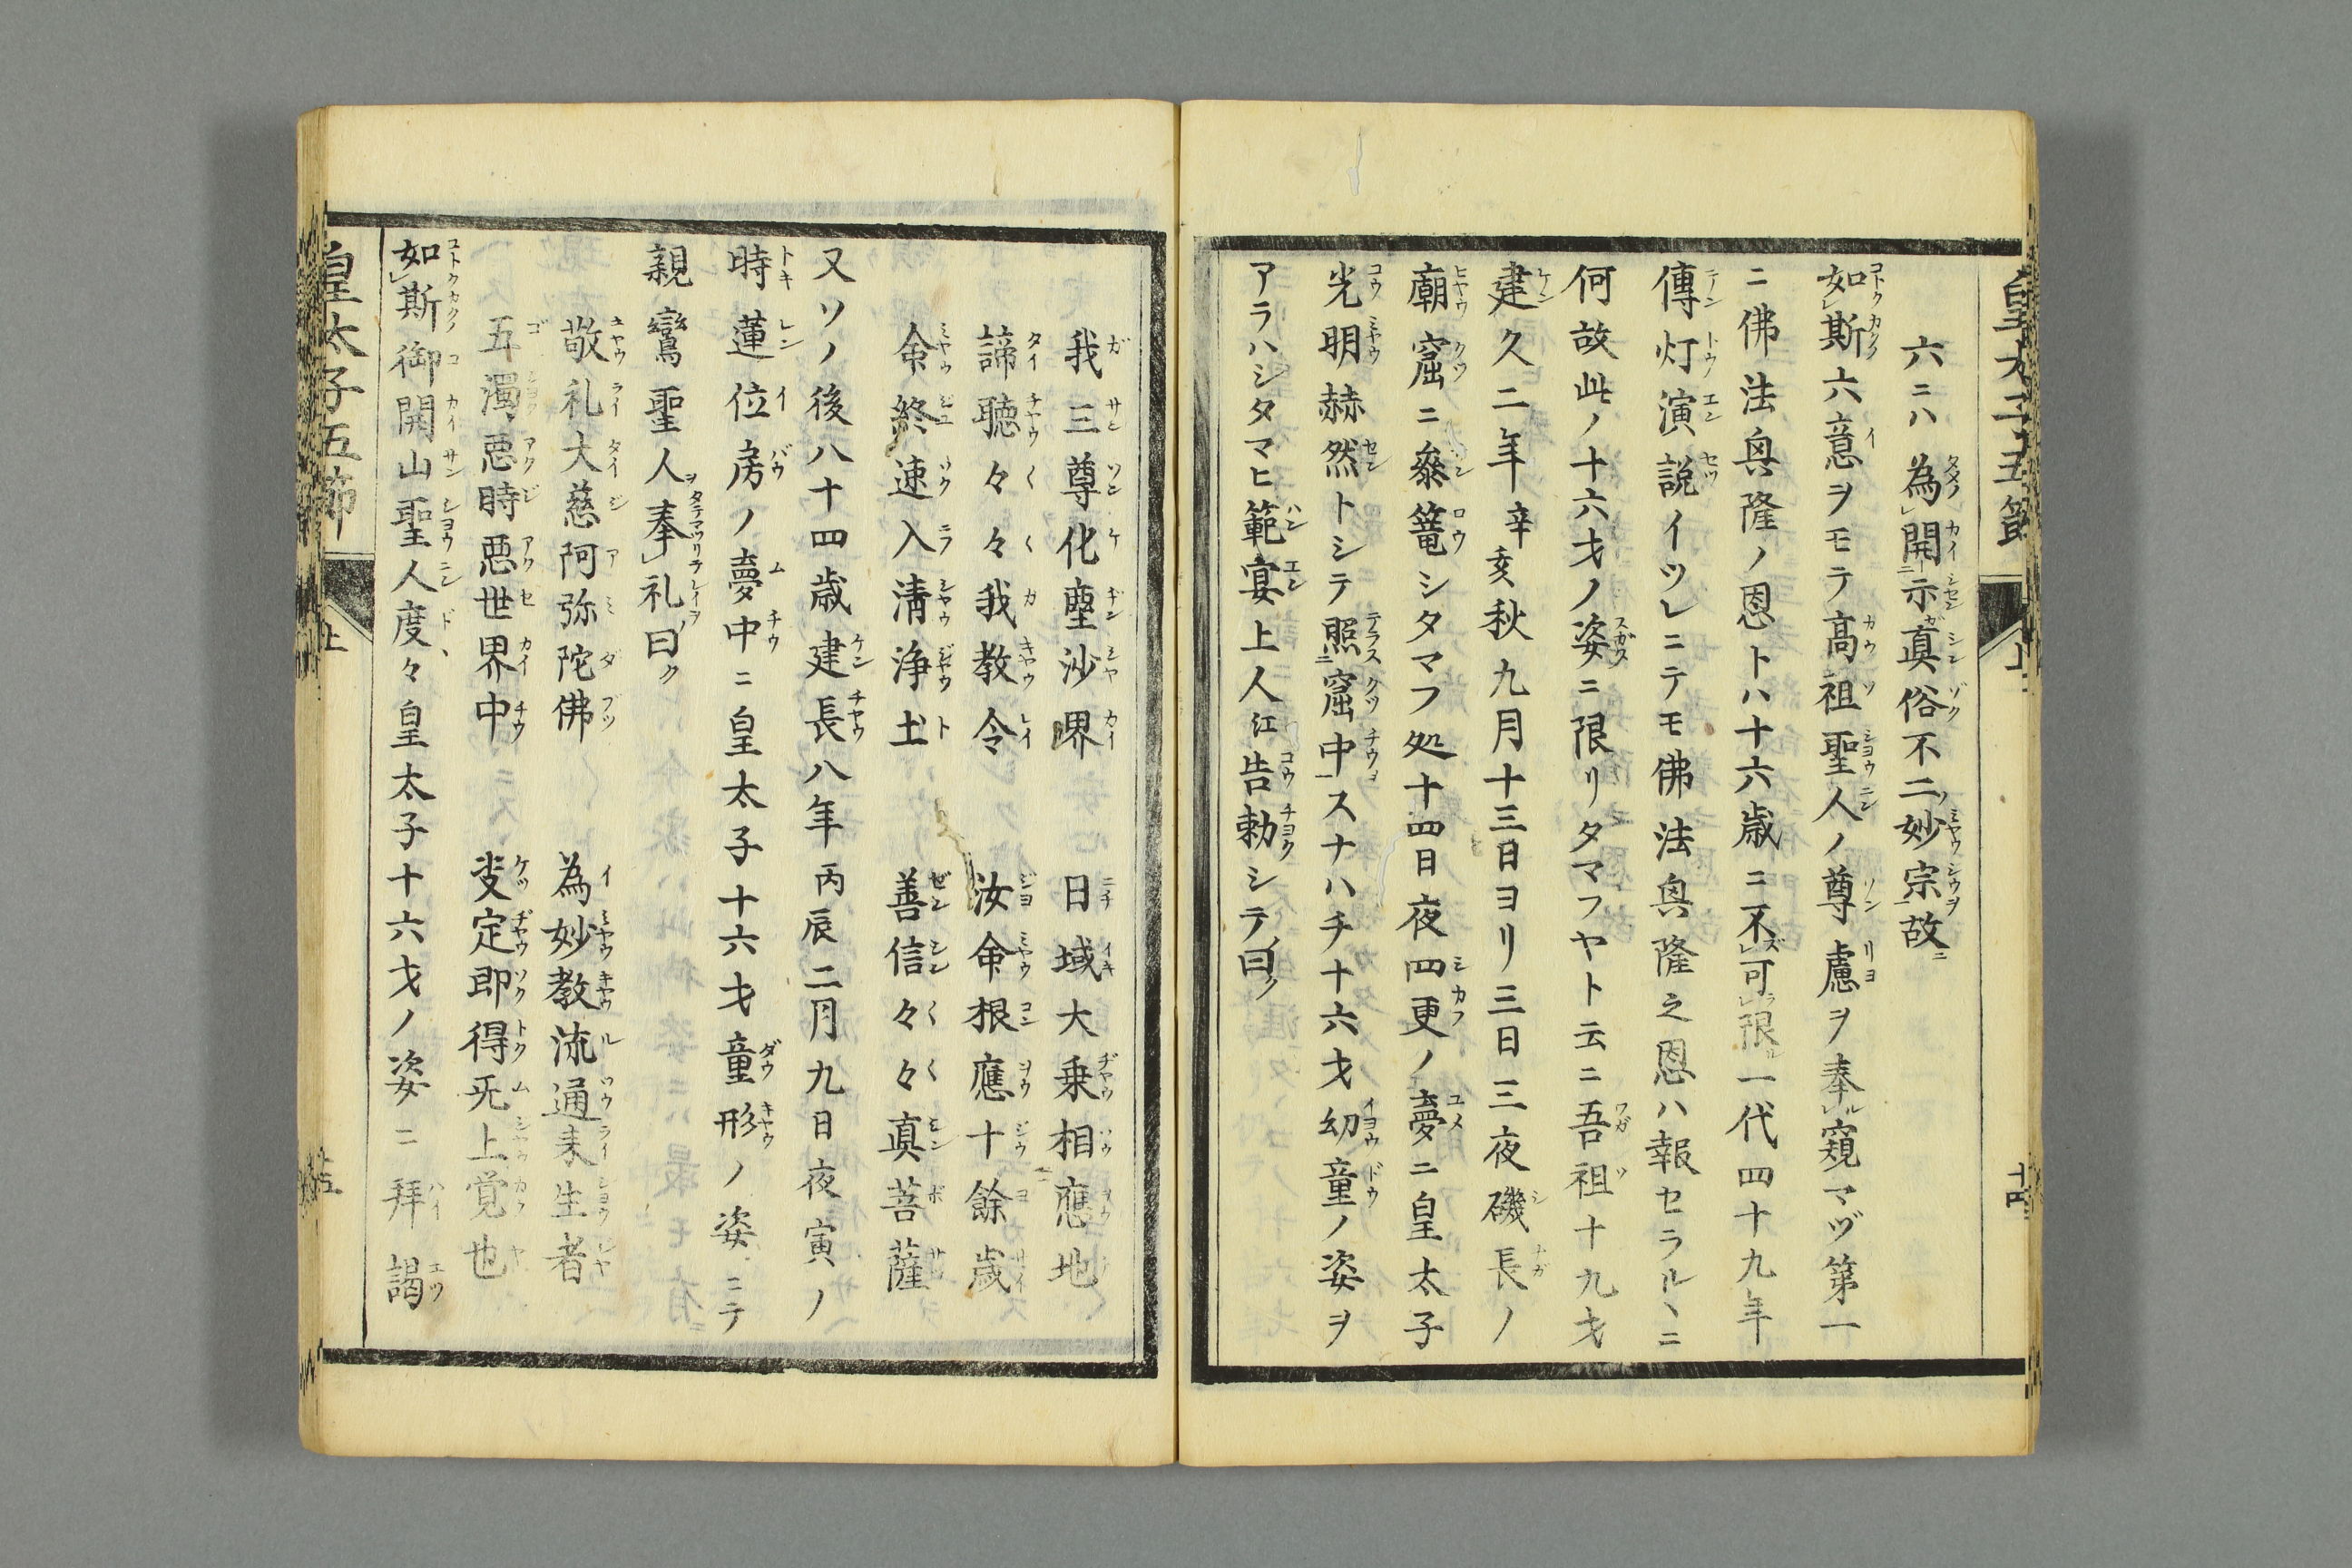 皇太子五節
上
六ニハ為開示真俗不二妙宗故ニ
如斯六意ヲモテ高祖聖人ノ尊慮ヲ奉窺マヅ第一
ニ佛法興隆ノ恩トハ十六歳ニ不可限一代四十九年
傳灯演説イツレニテモ佛法興隆之恩ハ報セラルヽニ
何故此ノ十六才ノ姿ニ限リタマフヤト云ニ吾祖十九才
建久二年辛亥秋九月十三日ヨリ三日三夜磯長ノ
廟窟ニ參篭シタマフ処十四日夜四更ノ夢ニ皇太子
光明赫然トシテ照窟中スナハチ十六才幼童ノ姿ヲ
アラハシタマヒ範宴上人江告勅シテノ曰ク
我三尊化塵沙界 日域大乗相應地
諦聴々々我教令 汝命根應十餘歳
命終速入清浄土 善信々々真菩薩
又ソノ後八十四歳建長八年丙辰二月九日夜寅ノ
時蓮位房ノ夢中ニ皇太子十六才童形ノ姿ニテ
親鸞聖人奉礼曰ク
敬礼大慈阿弥陀佛 為妙教流通来生者
五濁悪時悪世界中 决定即得无上覚也
如斯御開山聖人度々皇太子十六才ノ姿ニ拜謁
皇太子五節
上